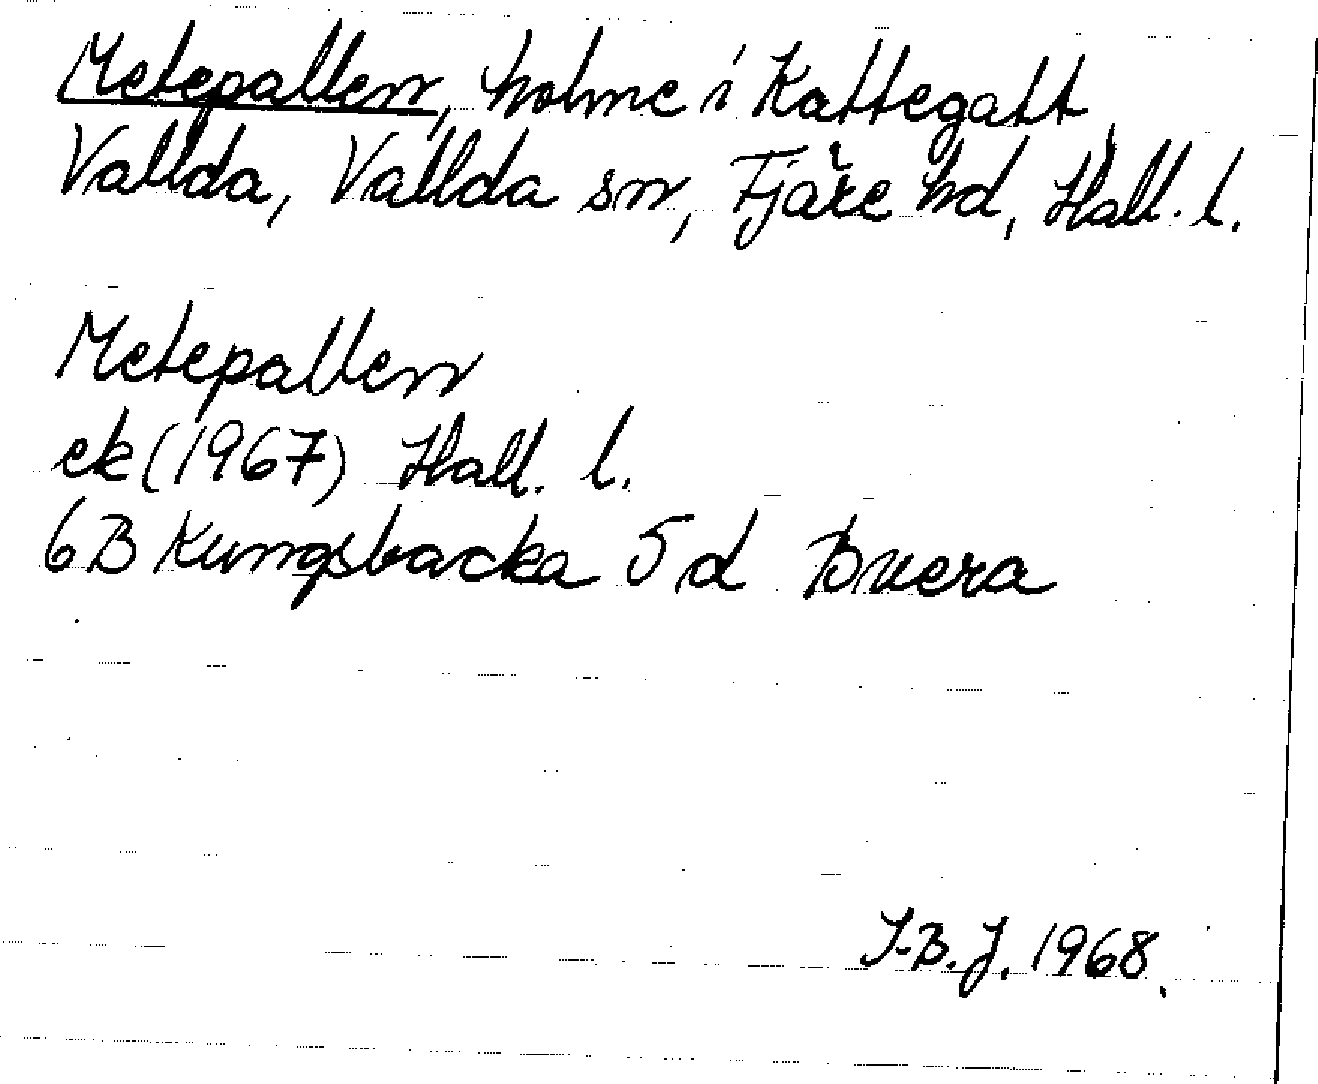 Metepallen, holme i Kattegatt
Vallda, Vallda sn, Fjäre hd, Hall. l.
Metepallen
ek (1967) Hall. l.
6B Kungsbacka 5 d Buera
I-B.J. 1968.